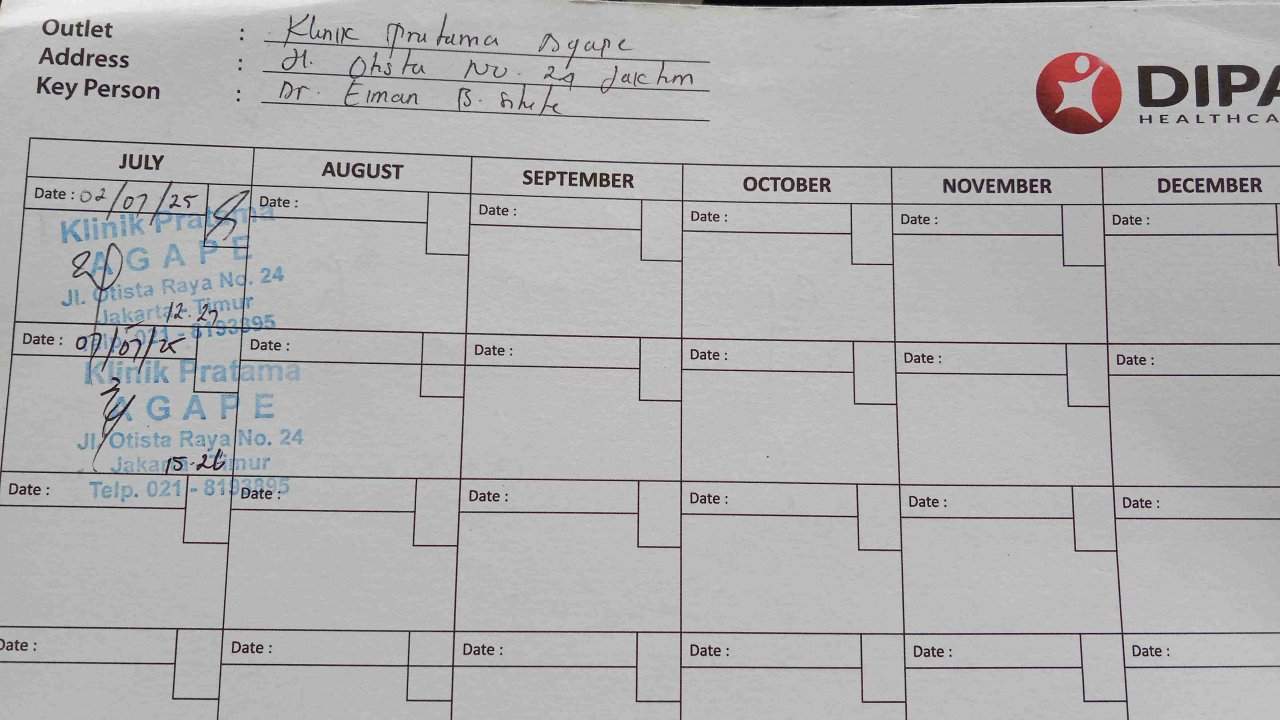 Outlet : Klinik Pratama Agape
Address : Jl. Otista No. 24 Jaktim
Key Person : Dr. Elman B.
DIPA
HEALTHCA
JULY AUGUST SEPTEMBER OCTOBER NOVEMBER DECEMBER
Date : 02/07/25 Date : Date : Date : Date : Date :
Klinik Pratama
AGAPE
Jl. Otista Raya No. 24
Jakarta Timur
12.27
Telp. 021 - 8193895
Date : 07/07/25 Date : Date : Date : Date : Date :
Klinik Pratama
AGAPE
Jl. Otista Raya No. 24
Jakarta Timur
15.26
Telp. 021 - 8193895
Date : Date : Date : Date : Date : Date :
Date : Date : Date : Date : Date : Date :